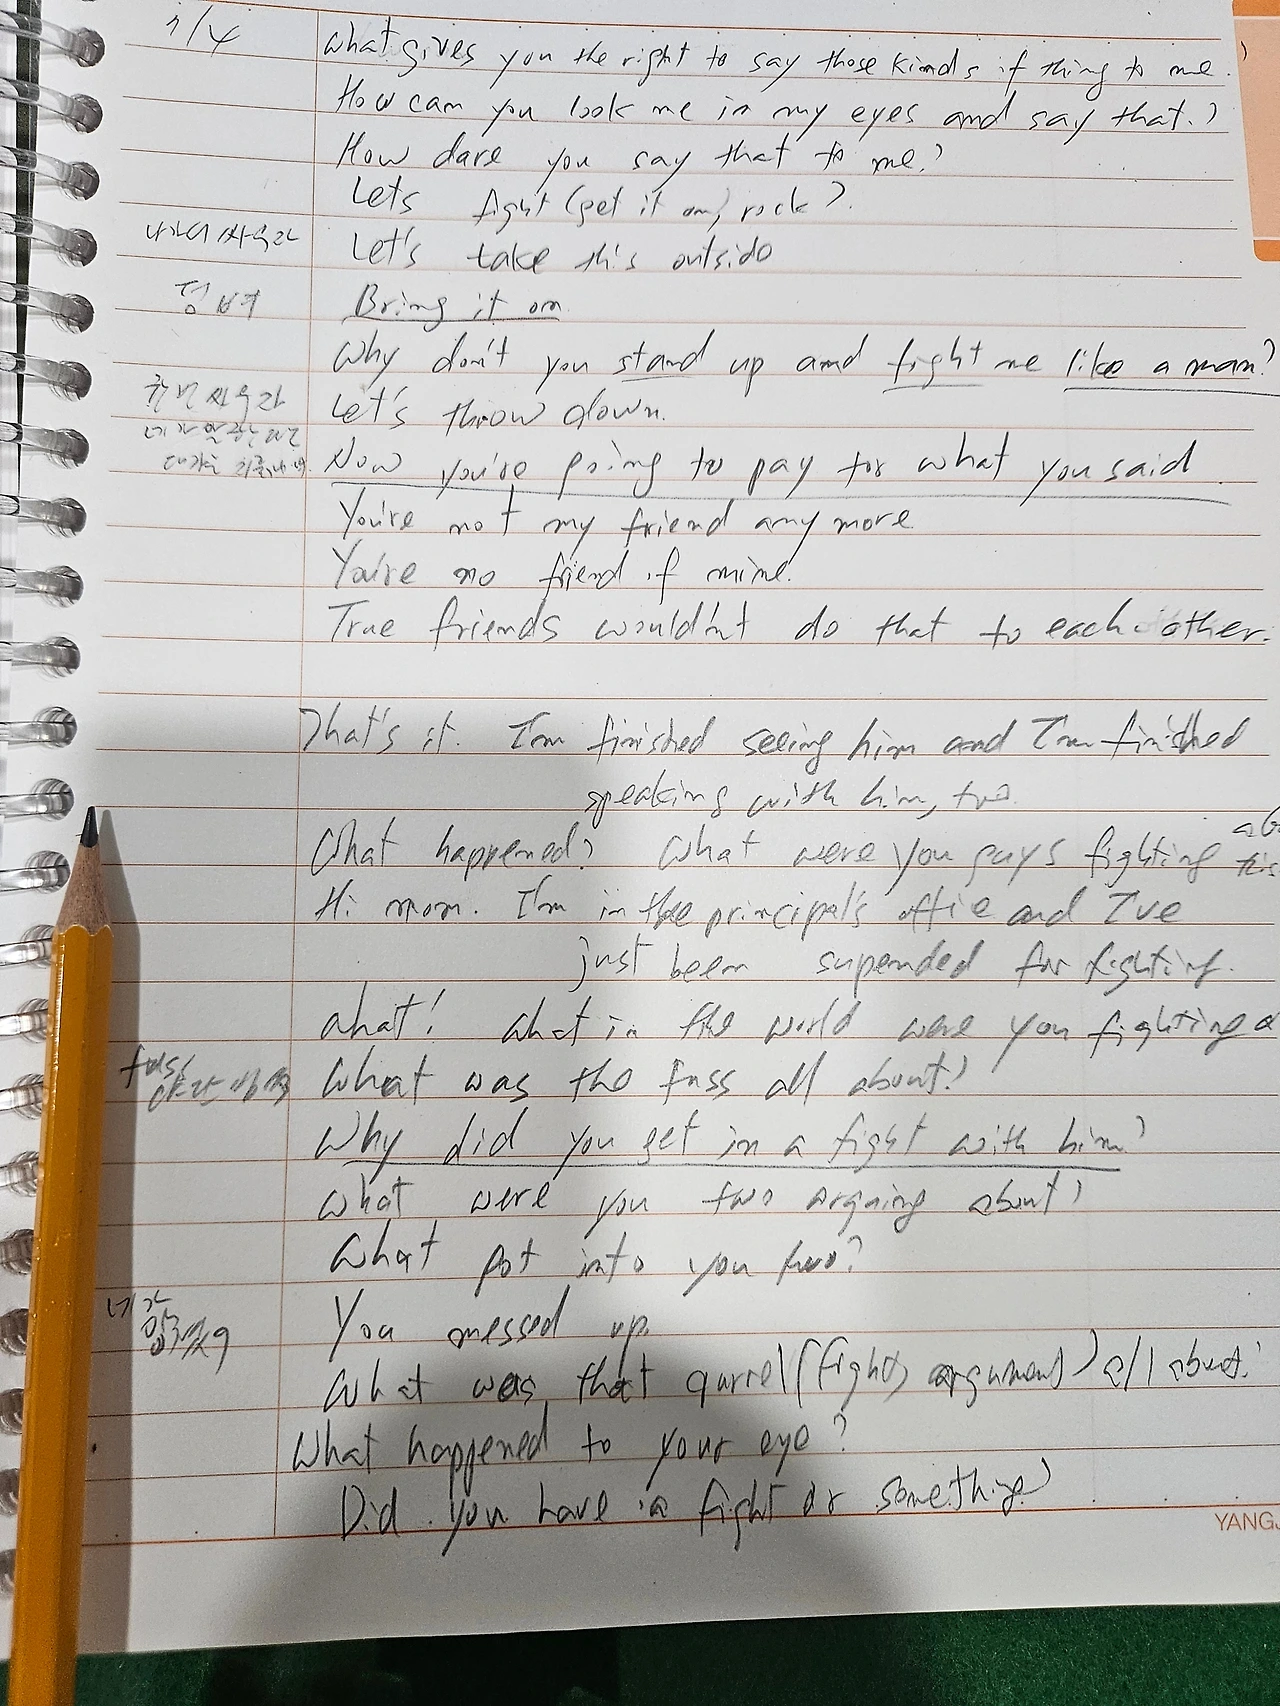 What gives you the right to say those kinds of thing to me?
How can you look me in my eyes and say that?
How dare you say that to me?
Let's fight (get it on, rock).
나가서 싸우자 Let's take this outside
덤벼 Bring it on
Why don't you stand up and fight me like a man?
한번 싸우자 Let's throw down.
네가 말한 Now you're going to pay for what you said
You're not my friend any more
You're no friend of mine.
True friends wouldn't do that to each other.
That's it. I'm finished seeing him and I'm finished
speaking with him, too.
What happened? What were you guys fighting
Hi mom. I'm in the principal's offie and I've
just been supended for fighting.
What! What in the world were you fighting a
fuss What was the fuss all about?
Why did you get in a fight with him?
What were you two arguing about?
What got into you two?
네가 You messed up.
What was that qurrel (fight, argument) all about?
What happened to your eye?
Did you have a fight or something?
YANG